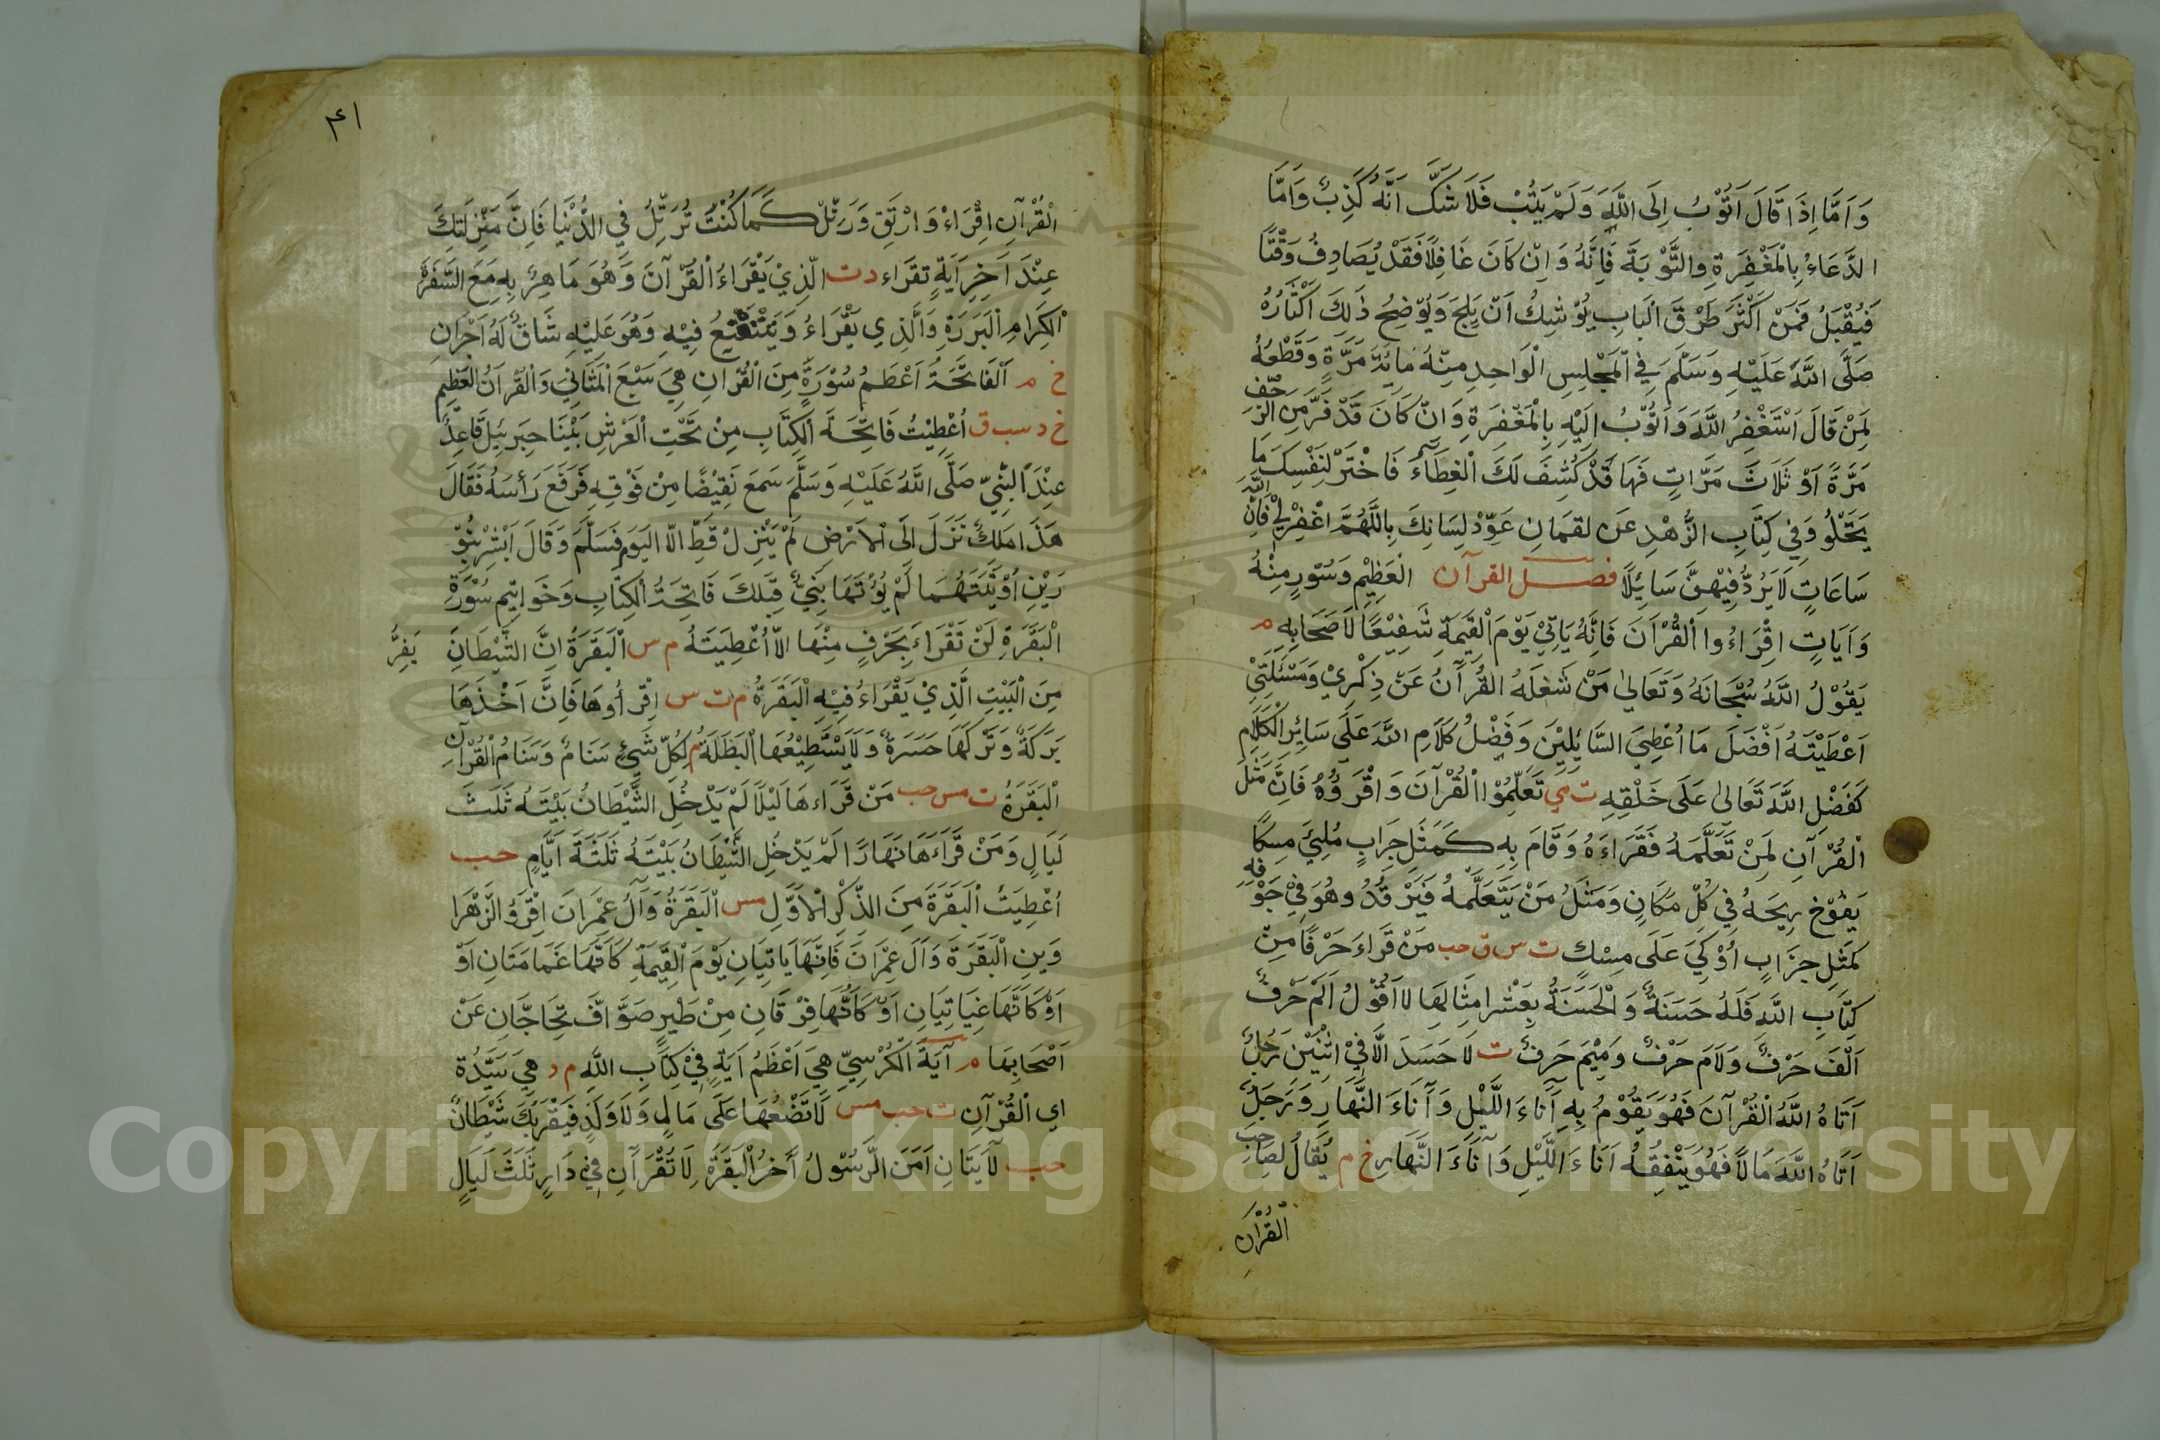 وَاَمَّا اِذَا قَالَ اَتُوْبُ اِلَى اللّٰهِ وَلَمْ يَتُبْ فَلَا شَكَّ اَنَّهُ كَذِبٌ وَاَمَّا
الدُّعَاءُ بِالْمَغْفِرَةِ وَالتَّوْبَةِ فَاِنَّهُ وَاِنْ كَانَ غَافِلًا فَقَدْ يُصَادِفُ وَقْتًا
فَيُقْبَلُ فَمَنْ اَكْثَرَ طَرْقَ الْبَابِ يُوْشِكُ اَنْ يَلِجَ وَيُوْضِحُ ذٰلِكَ اَكْثَارُهُ
صَلَّى اللّٰهُ عَلَيْهِ وَسَلَّمَ فِي الْمَجْلِسِ الْوَاحِدِ مِنْهُ مِائَةَ مَرَّةٍ وَقَطْعُهُ
لِمَنْ قَالَ اَسْتَغْفِرُ اللّٰهَ وَاَتُوْبُ اِلَيْهِ بِالْمَغْفِرَةِ وَاِنْ كَانَ قَدْ فَرَّ مِنَ الزَّحْفِ
مَرَّةً اَوْ ثَلَاثَ مَرَّاتٍ فَهَا قَدْ كُشِفَ لَكَ الْغِطَاءُ فَاخْتَرْ لِنَفْسِكَ مَا
يَحْلُو وَفِي كِتَابِ الزُّهْدِ عَن لقمَان عَوِّدْ لِسَانَكَ بِاللّٰهُمَّ اغْفِرْ لِي فَاِنَّ لِلّٰهِ
سَاعَاتٍ لَا يَرُدُّ فِيْهِنَّ سَائِلًا فصل القرآن الْعَظِيْمِ وَسُوَرٍ مِنْهُ
وَاٰيَاتٍ اِقْرَاءُوا الْقُرْاٰنَ فَاِنَّهُ يَاتِيْ يَوْمَ الْقِيٰمَةِ شَفِيْعًا لِاَصْحَابِهِ م
يَقُوْلُ اللّٰهُ سُبْحَانَهُ وَتَعَالىٰ مَنْ شَغَلَهُ الْقُرْاٰنُ عَنْ ذِكْرِيْ وَمَسْئَلَتِيْ
اَعْطَيْتُهُ اَفْضَلَ مَا اُعْطِيَ السَّائِلِيْنَ وَفَضْلُ كَلَامِ اللّٰهِ عَلَى سَائِرِ الْكَلَامِ
كَفَضْلِ اللّٰهِ تَعَالىٰ عَلَى خَلْقِهِ ت مي تَعَلَّمُوْا الْقُرْاٰنَ وَاقْرَؤُهُ فَاِنَّ مَثَلَ
الْقُرْاٰنِ لِمَنْ تَعَلَّمَهُ فَقَرَاءَهُ وَقَامَ بِهِ كَمَثَلِ جِرَابٍ مُلِئَ مِسْكًا
يَفُوْحُ رِيْحَهُ فِي كُلِّ مَكَانٍ وَمَثَلُ مَنْ يَتَعَلَّمُهُ فَيَرْقُدُ وهُوَ فِيْ جَوْفِهِ
كَمَثَلِ جِرَابٍ اُوْكِيَ عَلَى مِسْكٍ ت س ق حب مَنْ قَرَاءَ حَرْفًا مِنْ
كِتَابِ اللّٰهِ فَلَهُ حَسَنَةٌ وَالْحَسَنَةُ بِعَشْرِ امثَالِهَا لَا اَقُوْلُ الٓمٓ حَرْفٌ
اَلِفٌ حَرْفٌ وَلَامٌ حَرْفٌ وَمِيْمٌ حَرفٌ ت لَا حَسَدَ اِلَّا فِيْ اثْنَيْنِ رَجُلٌ
اٰتَاهُ اللّٰهُ الْقُرْاٰنَ فَهُوَ يَقُوْمُ بِهِ اٰنَاءَ اللَّيْلِ وَاٰنَاءَ النَّهَارِ وَرَجُلٌ
اٰتَاهُ اللّٰهُ مَالًا فَهُوَ يُنْفِقُهُ اٰنَاءَ اللَّيْلِ وَاٰنَاءَ النَّهَارِ خ م يُقَالُ لِصَاحِبِ
الْقُرْاٰنِ
٤١
الْقُرْاٰنِ اِقْرَاءْ وَارْتَقِ وَرَتِّلْ كَمَا كُنْتَ تُرَتِّلُ فِي الدُّنْيَا فَاِنَّ مَنْزِلَتَكَ
عِنْدَ اٰخِرِ اٰيَةٍ تقرَاء د ت الَّذِيْ يَقْرَاءُ الْقُرْاٰنَ وَهُوَ مَاهِرٌ بِهِ مَعَ السَّفَرَةِ
الْكِرَامِ الْبَرَرَةِ وَالَّذِي يَقْرَاءُ وَيَتَتَعْتَعُ فِيْهِ وَهُوَ عَلَيْهِ شَاقٌ لَهُ اَجْرَانِ
خ م اَلْفَاتِحَةُ اَعْظَمُ سُوْرَةٍ مِنَ الْقُرْاٰنِ هِيَ سَبْعَ الْمَثَانِي وَالْقُرْاٰنُ الْعَظِيْمِ
خ د س ق اُعْطِيْتُ فَاتِحَةَ الْكِتَابِ مِنْ تَحْتِ الْعَرْشِ بَيْنَا جِبرَئيلُ قَاعِدٌ
عِنْدَ النَّبِيِّ صَلَّى اللّٰهُ عَلَيْهِ وَسَلَّمَ سَمِعَ نَقِيْضًا مِنْ فَوْقِهِ فَرَفَعَ رَأْسَهُ فَقَالَ
هٰذَا مَلَكٌ نَزَلَ اِلَى الْاَرْضِ لَمْ يَنْزِلْ قَطُّ اِلَّا الْيَوْمَ فَسَلَّمَ وَقَالَ اَبْشِرْ بِنُوْ
رَيْنِ اُوْتِيْتَهُمَا لَمْ يُؤْتَهَا نَبِيٌّ قَبْلَكَ فَاتِحَةُ الْكِتَابِ وَخَوَاتِيْمِ سُوْرَةِ
الْبَقَرَةِ لَنْ تَقْرَاءَ بِحَرْفٍ مِنْهَا اِلَّا اُعْطِيْتَهُ م س الْبَقَرَةُ اِنَّ الشَّيْطَانَ يَفِرُّ
مِنَ الْبَيْتِ الَّذِيْ يَقْرَاءُ فِيْهِ الْبَقَرَةُ م ت س اِقْرَأُوهَا فَاِنَّ اَخْذَهَا
بَرَكَةٌ وَتَرْكَهَا حَسَرَةٌ وَلَا يَسْتَطِيْعُهَا الْبَطَلَةُ م لِكُلِّ شَيْءٍ سَنَامٌ وَسَنَامُ الْقُرْاٰنِ
الْبَقَرَةُ ت مس حب مَنْ قَرَاءَهَا لَيْلًا لَمْ يَدْخُلِ الشَّيْطَانُ بَيْتَهُ ثَلَثَ
لَيَالٍ وَمَنْ قَرَاءَهَا نَهَارًا لَمْ يَدْخُلِ الشَّيْطَانُ بَيْتَهُ ثَلَثَةَ اَيَّامٍ حب
اُعْطِيْتُ الْبَقَرَةَ مِنَ الذِّكْرِ الْاَوَّلِ مس الْبَقَرَةُ وَاٰلُ عِمْرَانَ اِقْرَؤُا الزَّهْرَا
وَيْنِ الْبَقَرَةَ وَاٰلَ عِمْرَانَ فَاِنَّهَا يَاتِيَانِ يَوْمَ الْقِيٰمَةِ كَاَنَّهَا غَمَامَتَانِ اَوْ
اَوْ كَاَنَّهَا غَيَايَتِيَانِ اَوْ كَاَنَّهَا فِرْقَانِ مِنْ طَيْرٍ صَوَّافَّ تُحَاجَّانِ عَنْ
اَصْحَابِهَا م اٰيَةُ الْكُرْسِيّ هِيَ اَعْظَمُ اٰيَةٍ فِيْ كِتَابِ اللّٰهِ م د هِيَ سَيِّدَةُ
اي الْقُرْاٰنِ ت حب مس لَا تَضَعُهَا عَلَى مَالٍ وَلَا وَلَدٍ فَيَقْرَبَكَ شَيْطَانٌ
حب لْاٰيَتَانِ اٰمَنَ الرَّسُوْلُ اٰخِرُ الْبَقَرَةِ لَا تُقْرَاٰنِ فِيْ دَارٍ ثَلَثَ لَيَالٍ
Copyright © King Saud University